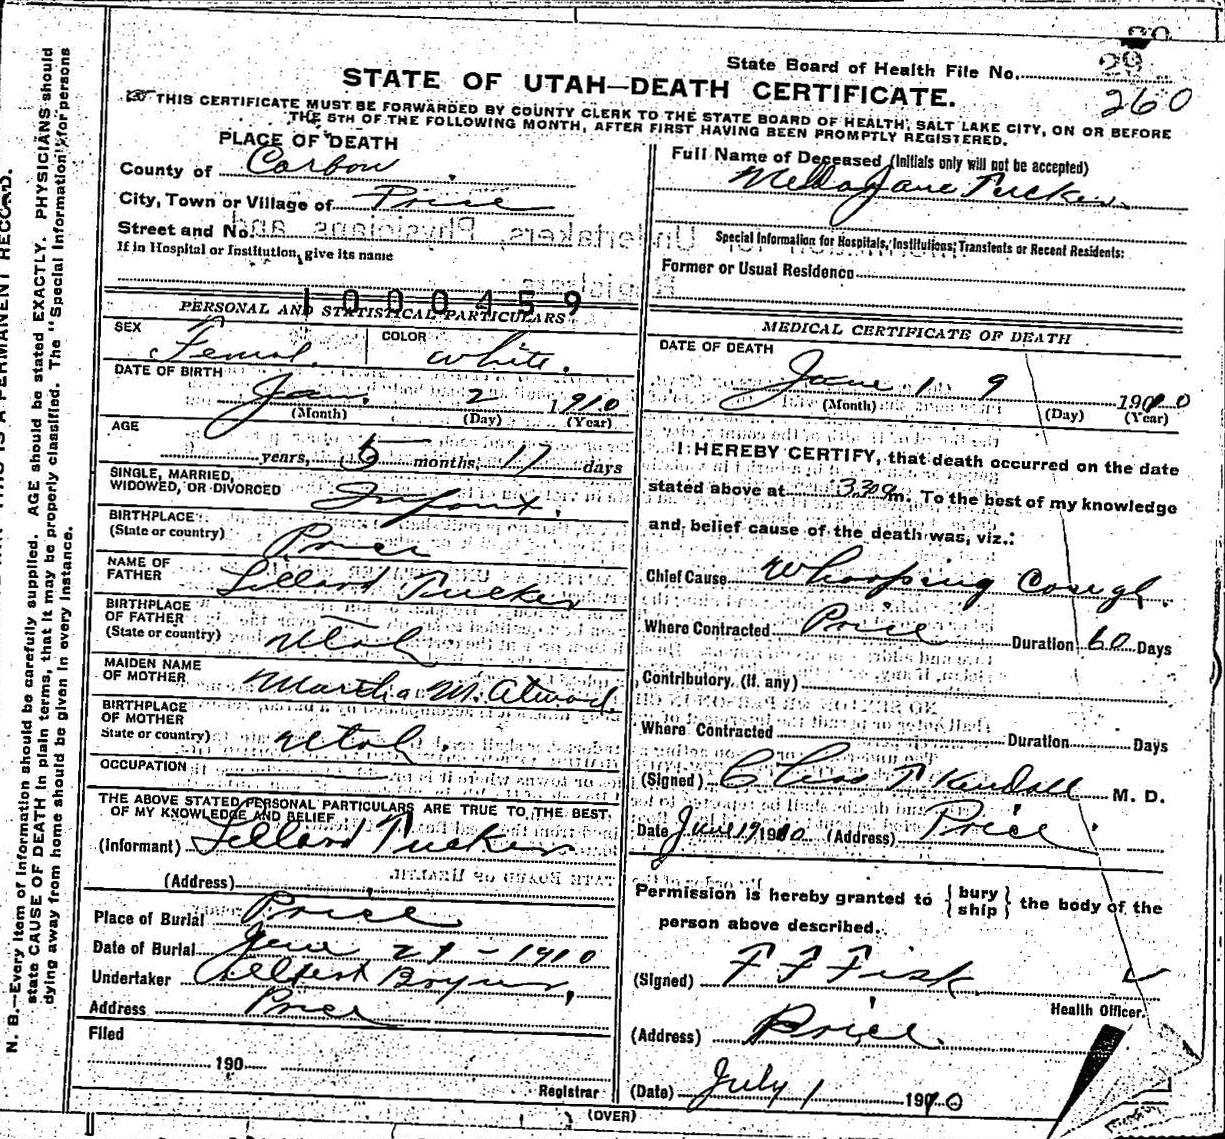 State Board of Health File No. 29
260
STATE OF UTAH—DEATH CERTIFICATE.
THIS CERTIFICATE MUST BE FORWARDED BY COUNTY CLERK TO THE STATE BOARD OF HEALTH, SALT LAKE CITY, ON OR BEFORE
THE 5TH OF THE FOLLOWING MONTH, AFTER FIRST HAVING BEEN PROMPTLY REGISTERED.
PLACE OF DEATH
County of Carbon
City, Town or Village of Price
Street and No.
If in Hospital or Institution, give its name
Full Name of Deceased (Initials only will not be accepted)
Melba Jane Tucker
Special Information for Hospitals, Institutions, Transients or Recent Residents:
Former or Usual Residence
1000459
PERSONAL AND STATISTICAL PARTICULARS
SEX Femal. COLOR White.
DATE OF BIRTH
Jan. 2 1910
(Month) (Day) (Year)
AGE
years, 5 months, 17 days
SINGLE, MARRIED,
WIDOWED, OR DIVORCED Infant.
BIRTHPLACE
(State or country) Price
NAME OF
FATHER Lillard Tucker
BIRTHPLACE
OF FATHER
(State or country) Utah
MAIDEN NAME
OF MOTHER Martha M. Atwood.
BIRTHPLACE
OF MOTHER
State or country) Utah.
OCCUPATION
THE ABOVE STATED PERSONAL PARTICULARS ARE TRUE TO THE BEST
OF MY KNOWLEDGE AND BELIEF
(Informant) Lillard Tucker
(Address)
Place of Burial Price
Date of Burial June 21-1910
Undertaker
Address Price
Filed
190
Registrar
MEDICAL CERTIFICATE OF DEATH
DATE OF DEATH
June 19 1910
(Month) (Day) (Year)
I HEREBY CERTIFY, that death occurred on the date
stated above at 330 a m. To the best of my knowledge
and belief cause of the death was, viz.:
Chief Cause Whooping Cough.
Where Contracted Price Duration 60 Days
Contributory (if any)
Where Contracted Duration Days
(Signed) Chas T Kendall M. D.
Date June 19 1910 (Address) Price
Permission is hereby granted to { bury ship } the body of the
person above described.
(Signed) F F Fisk
Health Officer.
(Address) Price.
(Date) July 1 1910
(OVER)
N. B.—Every item of information should be carefully supplied. AGE should be stated EXACTLY. PHYSICIANS should
state CAUSE OF DEATH in plain terms, that it may be properly classified. The "Special Information" for persons
dying away from home should be given in every instance.
THIS IS A PERMANENT RECORD.